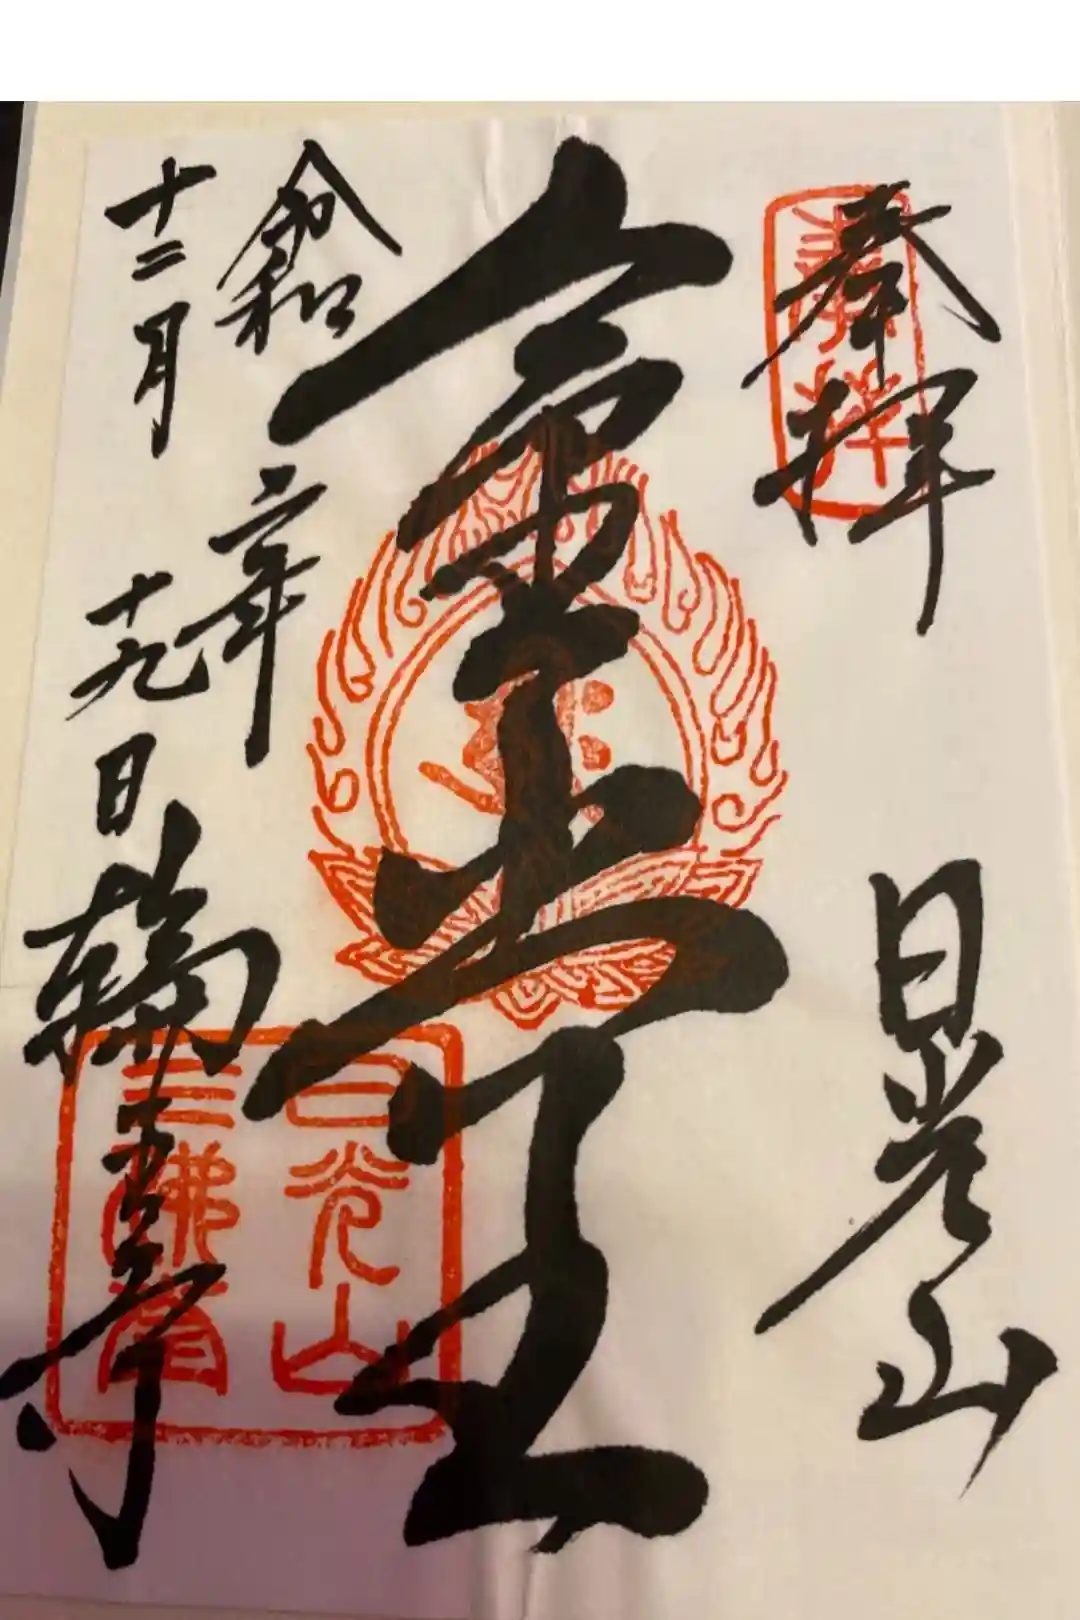 奉拝
奉拝
日光山
令和六年
十二月十九日
輪王寺
日光山
三佛堂